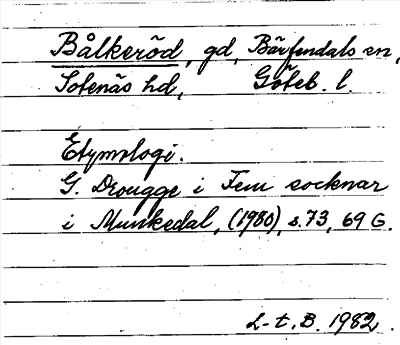 Bålkeröd, gd, Bärfendals sn,
Sotenäs hd, Göteb. l.
Etymologi.
G. Drougge i Fem socknar
i Munkedal, (1980), s.73, 69 G.
L-t, B. 1982.